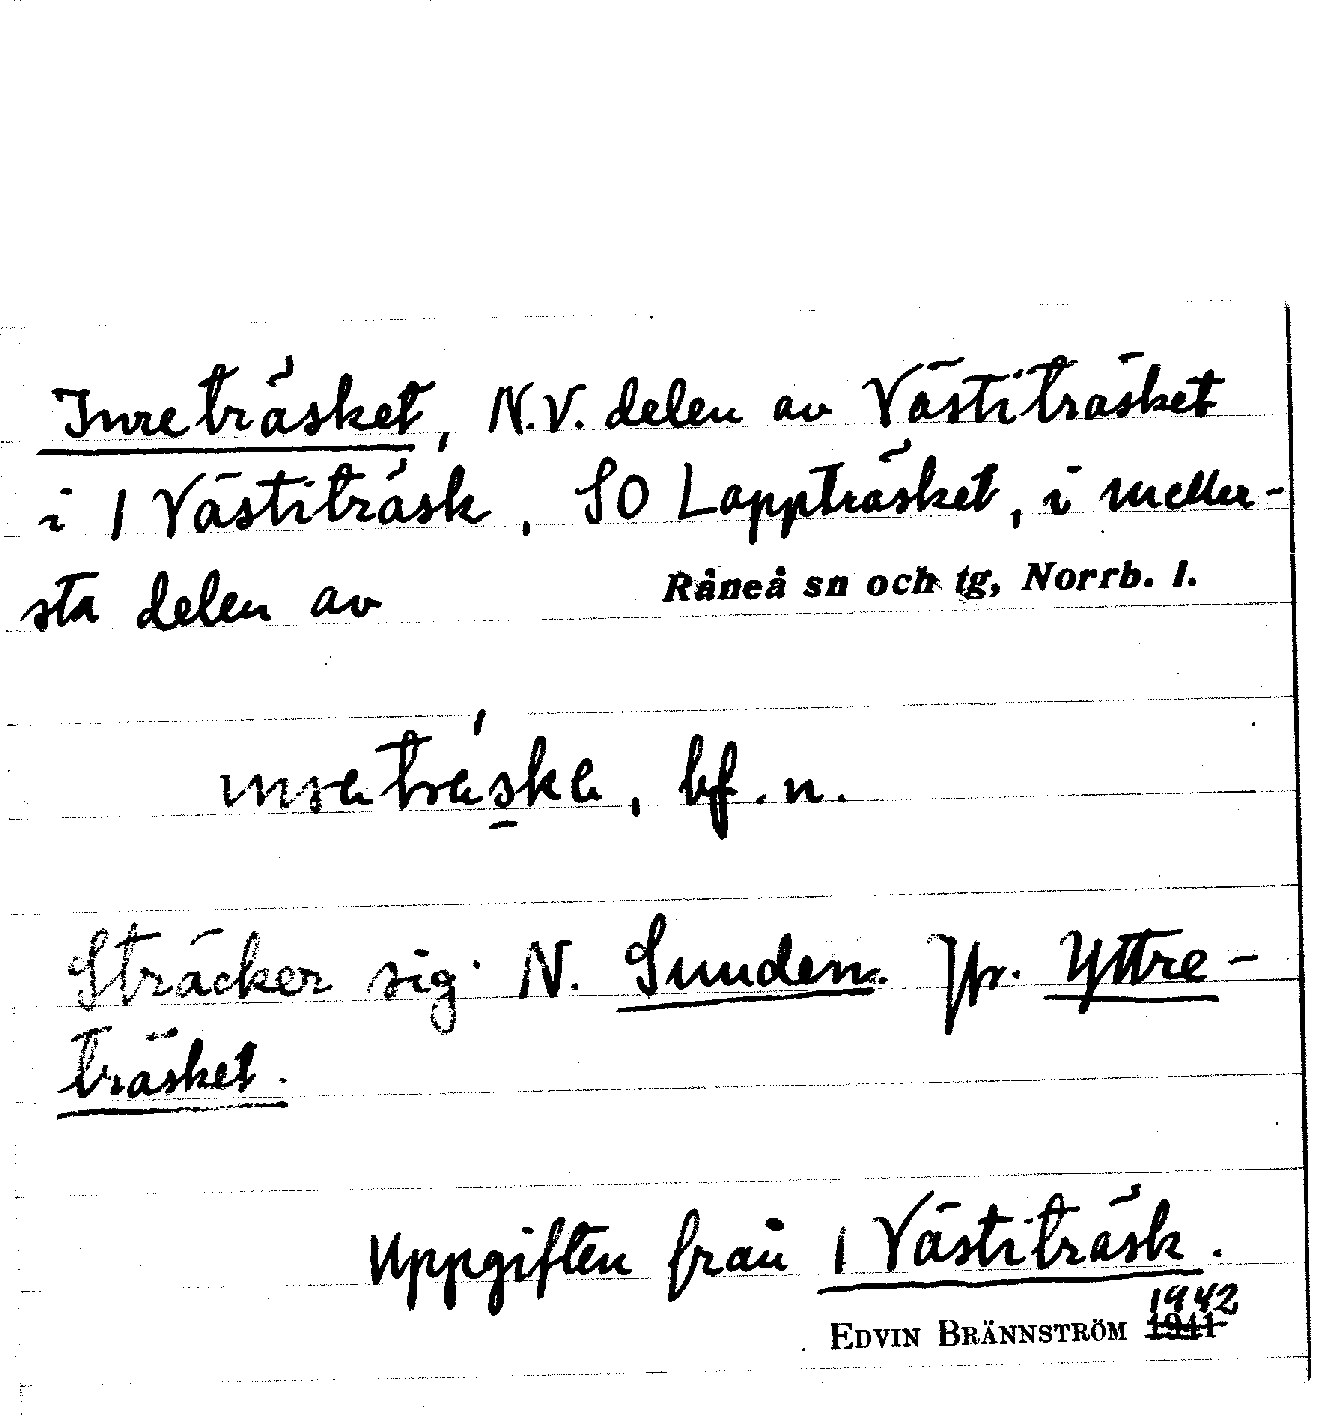 Inreträsket, N.V. delen av Västiträsket
i 1 Västiträsk, SO Lappträsket, i meller-
sta delen av Råneå sn och tg, Norrb. l.
bf. n.
Sträcker sig N. Sunden. Jfr. Yttre-
träsket.
Uppgiften från 1 Västiträsk.
1942
EDVIN BRÄNNSTRÖM 1941